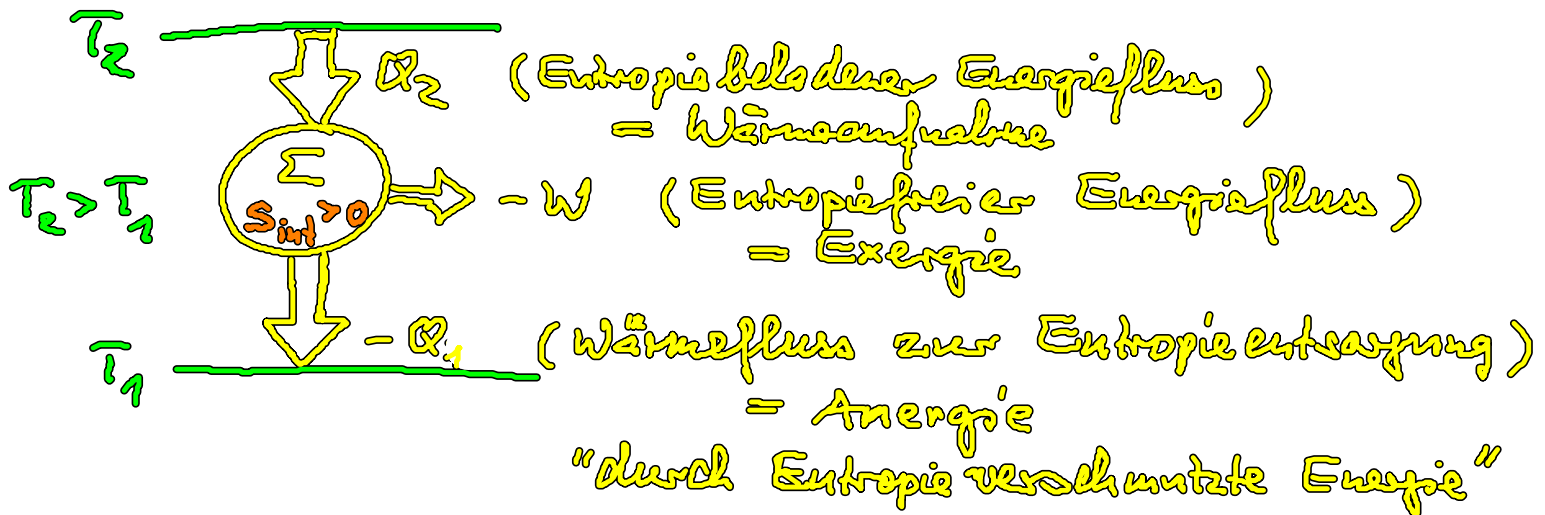 T₂
Q₂ (Entropiebeladener Energiefluss)
= Wärmeaufnahme
T₂ > T₁
Σ
S_int > 0
- W (Entropiefreier Energiefluss)
= Exergie
- Q₁ (Wärmefluss zur Entropieentsorgung)
T₁
= Anergie
"durch Entropie verschmutzte Energie"